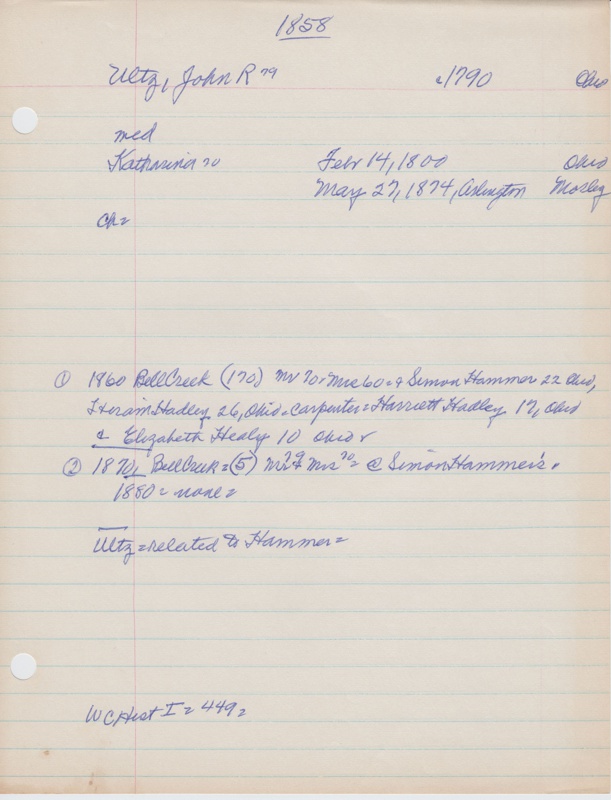 1858
Ultz, John R 79 c1790 Ohio
med
Katharina 70 Febr 14, 1800 Ohio
May 27, 1874, Arlington Mosley
Ch=
① 1860 Bell Creek (170) Mr 70, Mrs 60 = & Simon Hammer 22 Ohio,
Hiram Hadley = 26, Ohio = carpenter = Harriett Hadley 17, Ohio
& Elizabeth Healy 10 Ohio
② 1870, Bell Creek = (5) Mr 79 Mrs 70 = @ Simon Hammer's.
1880 = none =
Ultz = related to Hammer =
W C Hist I = 449 =